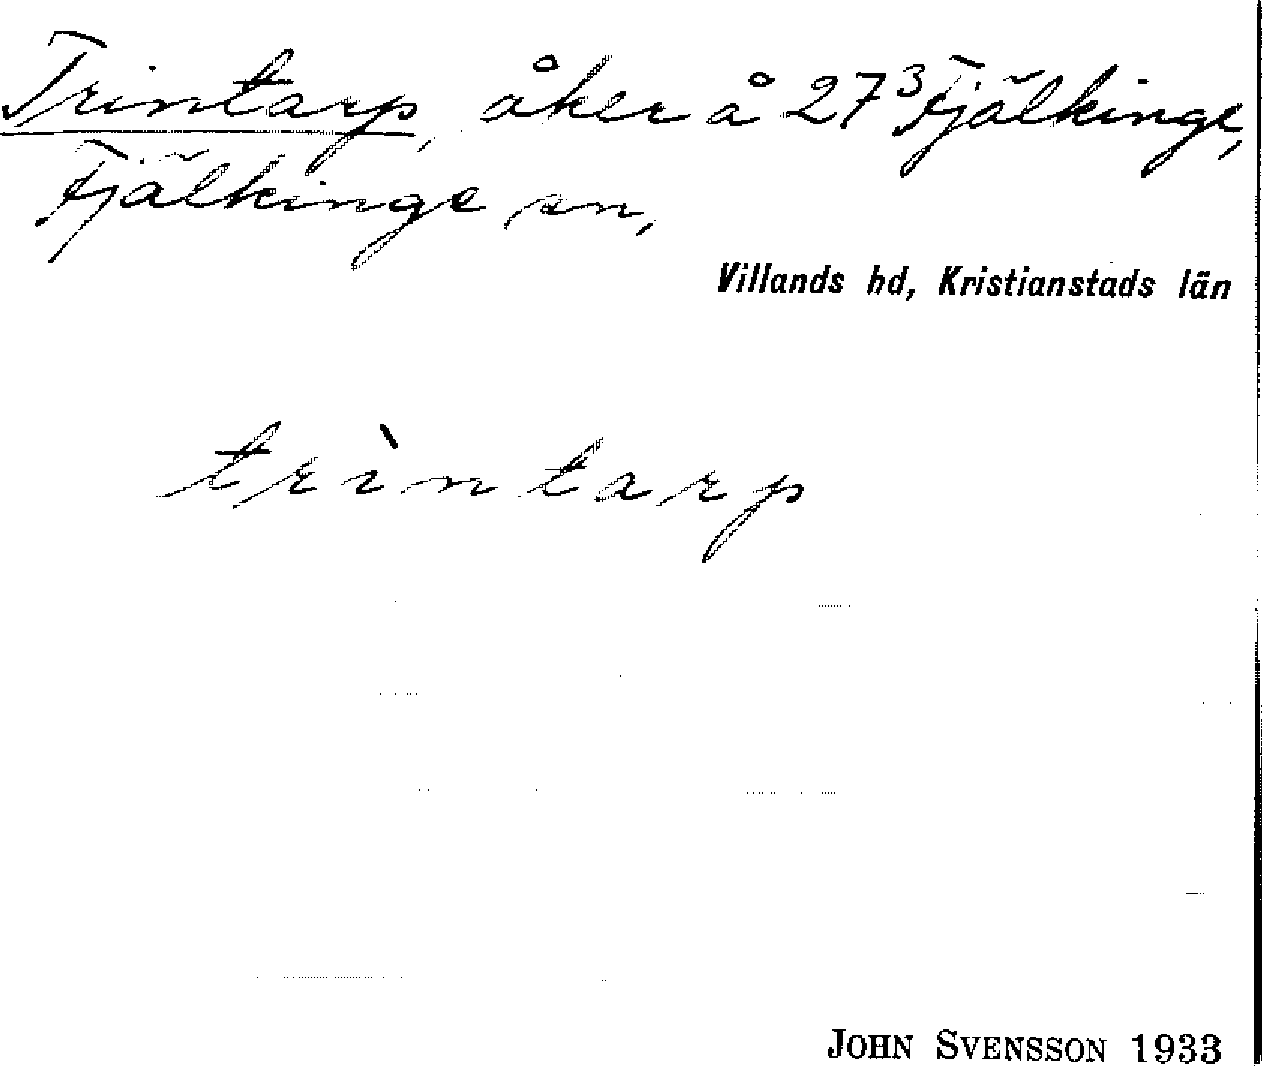 Trintarp, åker å 27³ Fjälkinge,
Fjälkinge sn,
Villands hd, Kristianstads län
trìntarp
JOHN SVENSSON 1933